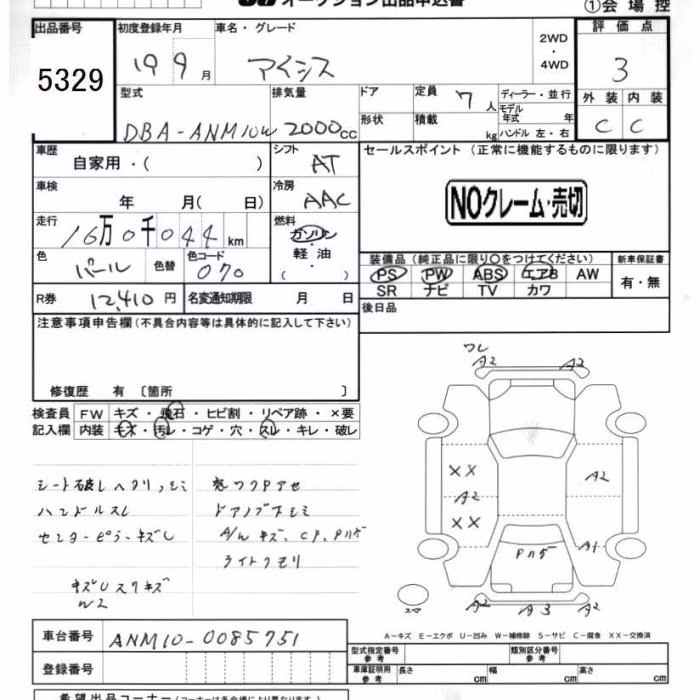 オークション出品申込書
①会場控
出品番号
5329
初度登録年月
19 9月
車名・グレード
アイシス
2WD
・
4WD
評価点
3
型式
DBA-ANM10W
排気量
2000cc
ドア
形状
定員
7人
積載
kg
ディーラー・並行
モデル年式 年
ハンドル 左・右
外装 内装
C C
車歴
自家用・( )
シフト
AT
セールスポイント (正常に機能するものに限ります)
NOクレーム・売切
車検
年 月( 日)
冷房
AAC
走行
16万0千044km
燃料
ガソリン
・
軽油
・
( )
色
パール
色替
色コード
070
装備品 (純正品に限り○をつけてください)
PS PW ABS エアB AW
SR ナビ TV カワ
新車保証書
有・無
R券 12,410円
名変通知期限 月 日
後日品
注意事項申告欄(不具合内容等は具体的に記入して下さい)
修復歴 有 〔箇所 〕
検査員
記入欄
FW キズ・飛石・ヒビ割・リペア跡・×要
内装 キズ・汚レ・コゲ・穴・スレ・キレ・破レ
シート破レヘタリ,シミ
ハンドルスレ
センターピラーキズU
キズUスリキズ
W2
ドアノブ
A/W キズ、CP、Pハゲ
ライトクモリ
ワレ
A2 A2
XX
A2
XX
A2
A1
Pハゲ
スペア
A2 A3 A2
A-キズ E-エクボ U-凹み W-補修跡 S-サビ C-腐食 XX-交換済
車台番号
ANM10-0085751
登録番号
型式指定番号
参考
類別区分番号
参考
車庫証明用
参考
長さ cm
幅 cm
高さ cm
希望出品コーナー(コーナーは各会場により異なります)